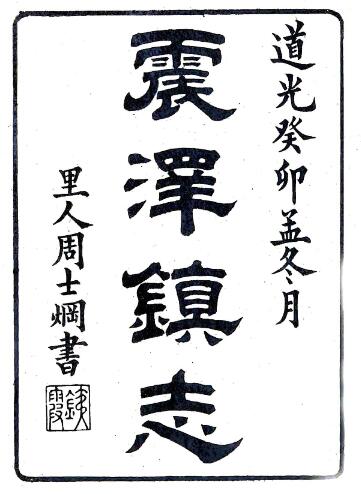 道光癸卯孟冬月
震澤鎮志
里人周士烱書